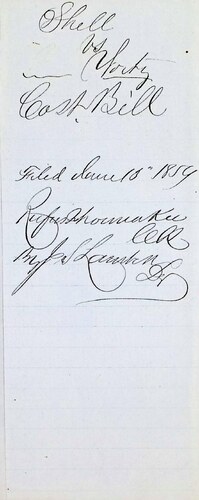 Shell
vs
Yorty
Cost Bill
Filed June 10th 1859
Rufus Shoemaker
Clk
By J S Lambert
Dy